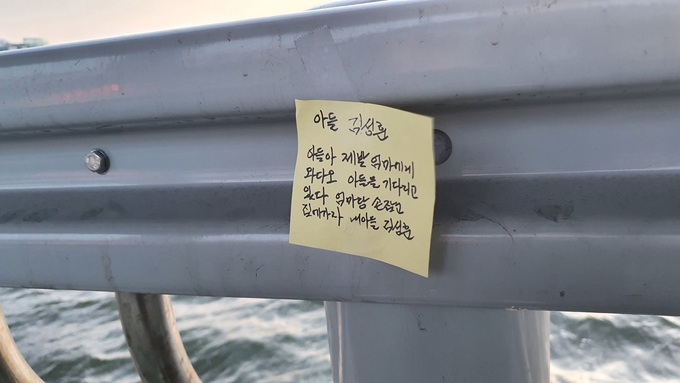 아들 김성훈
아들아 제발 엄마에게
와다오 아들을 기다리고
있다 엄마랑 손잡고
집에가자 내아들 김성훈